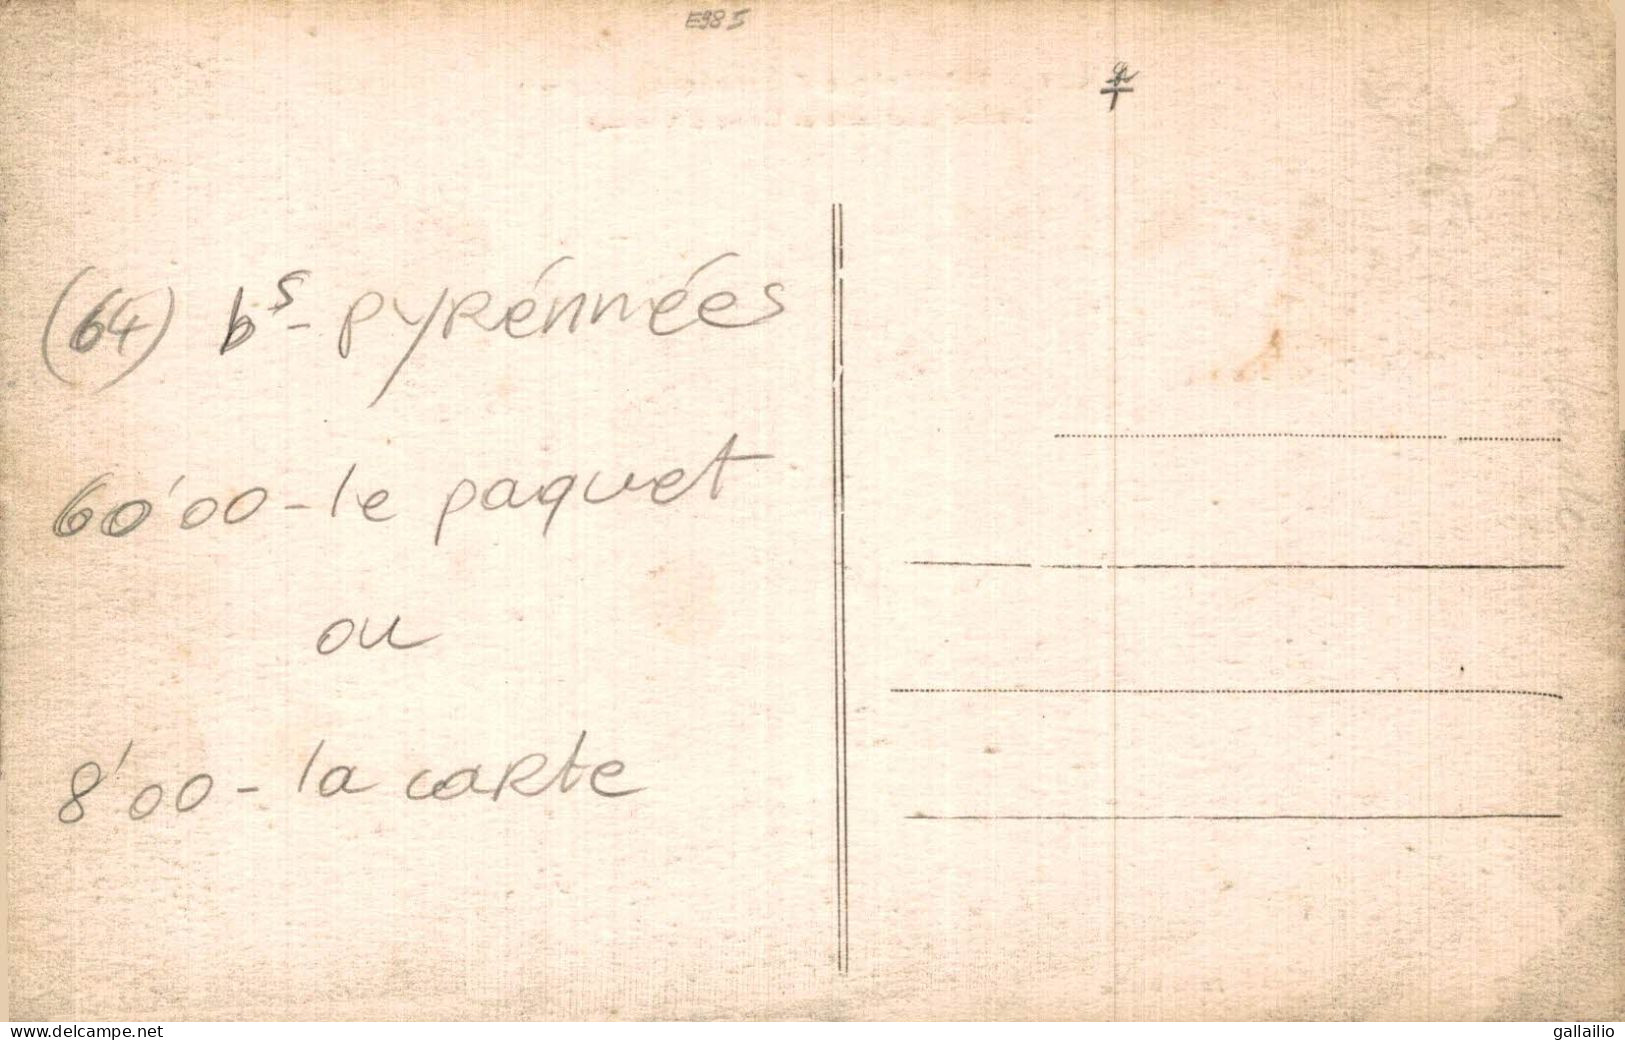 E985
(64) bˢ - PYRénnées
60'00 - le paquet
ou
8'00 - la caRte
www.delcampe.net
gallailio